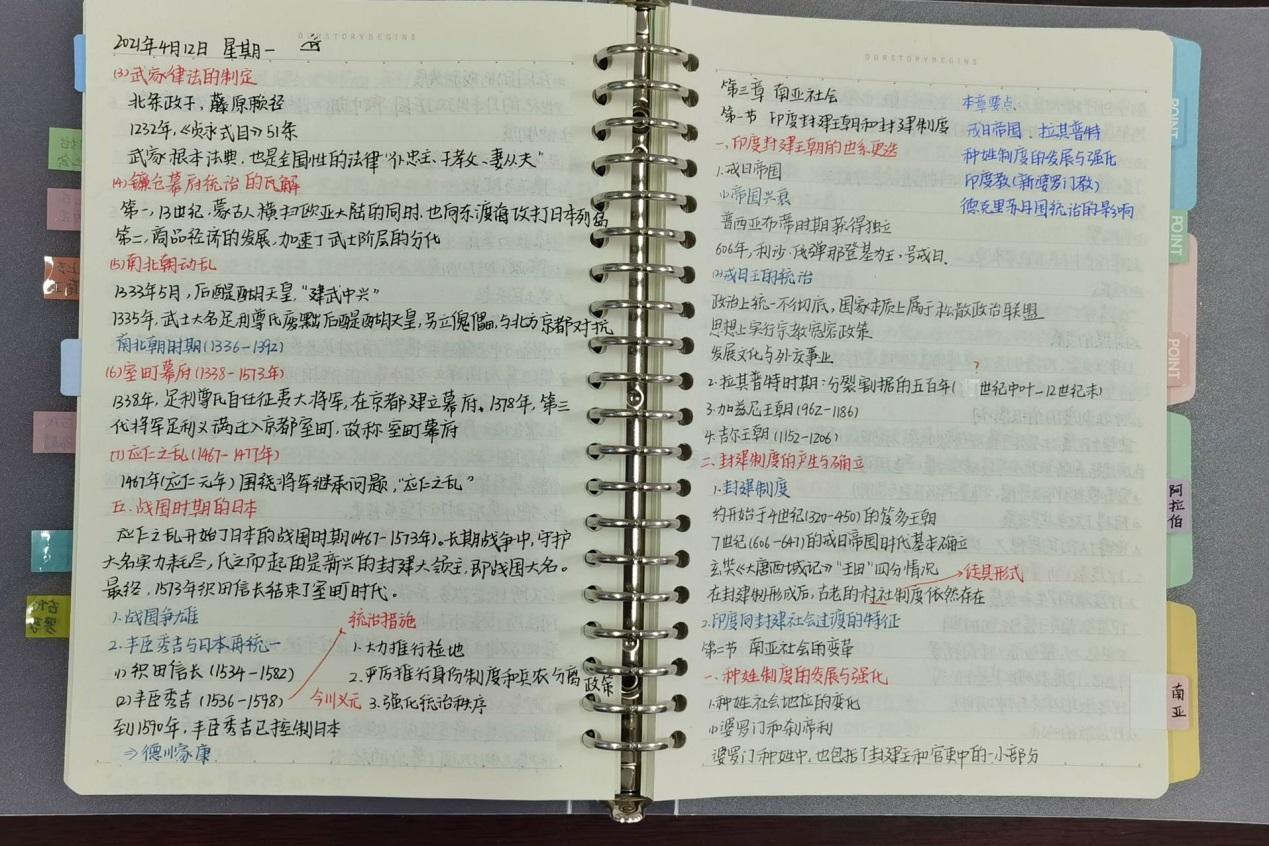 OURSTORYBEGINS
2021年4月12日 星期一
(3)武家律法的制定
北条政子，藤原赖经
1232年，《贞永式目》51条
武家根本法典，也是全国性的法律“仆忠主、子孝父、妻从夫”
(4)镰仓幕府统治的瓦解
第一，13世纪，蒙古人横扫欧亚大陆的同时，也向东渡海攻打日本列岛
第二，商品经济的发展，加速了武士阶层的分化
(5)南北朝动乱
1333年5月，后醍醐天皇，“建武中兴”
1335年，武士大名足利尊氏废黜后醍醐天皇，另立傀儡，与北方京都对抗
南北朝时期(1336-1392)
(6)室町幕府(1338-1573年)
1338年，足利尊氏自任征夷大将军，在京都建立幕府。1378年，第三
代将军足利义满迁入京都室町，改称室町幕府
(7)应仁之乱(1467-1477年)
1467年(应仁元年)围绕将军继承问题，“应仁之乱”
五、战国时期的日本
应仁之乱开始了日本的战国时期(1467-1573年)。长期战争中，守护
大名实力耗尽，代之而起的是新兴的封建大领主，即战国大名。
最终，1573年织田信长结束了室町时代。
1.战国争雄
2.丰臣秀吉与日本再统一
(1)织田信长(1534-1582)
(2)丰臣秀吉(1536-1598) 今川义元
到1590年，丰臣秀吉已控制日本
⇒德川家康
统治措施
1.大力推行检地
2.严厉推行身份制度和兵农分离政策
3.强化统治秩序
OURSTORYBEGINS
第三章 南亚社会
第一节 印度封建王朝和封建制度
一、印度封建王朝的世系更迭
1.戒日帝国
(1)帝国兴衰
普西亚布蒂时期获得独立
606年，利沙·伐弹那登基为王，号戒日、
(2)戒日王的统治
政治上统一不彻底，国家本质上属于松散政治联盟
思想上实行宗教宽容政策
发展文化与外交事业
2.拉其普特时期：分裂割据的五百年( ? 世纪中叶-12世纪末)
3.加兹尼王朝(962-1186)
4.古尔王朝(1152-1206)
二、封建制度的产生与确立
1.封建制度
约开始于4世纪(320-450)的笈多王朝
7世纪(606-647)的戒日帝国时代基本确立
玄奘《大唐西域记》“王田”四分情况
→徒具形式
在封建制形成后，古老的村社制度依然存在
2.印度向封建社会过渡的特征
第二节 南亚社会的变革
一、种姓制度的发展与强化
1.种姓社会地位的变化
(1)婆罗门和刹帝利
婆罗门种姓中，也包括了封建主和官吏中的一小部分
本章要点：
戒日帝国、拉其普特
种姓制度的发展与强化
印度教(新婆罗门教)
德克里苏丹国统治的影响
POINT
POINT
POINT
阿拉伯
南亚